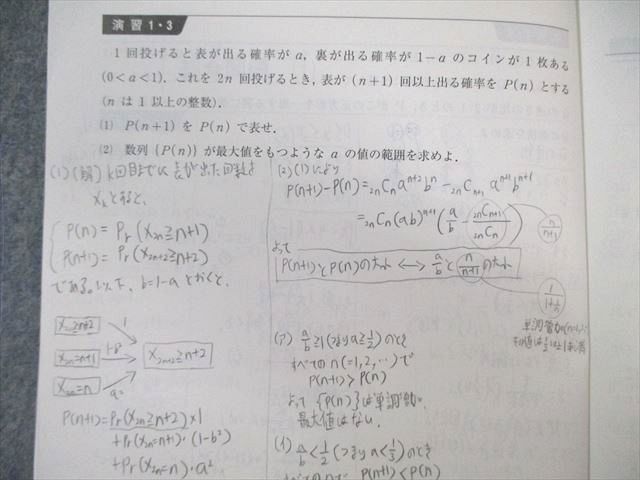 演習1・3
1回投げると表が出る確率が a, 裏が出る確率が 1－a のコインが1枚ある
(0<a<1). これを 2n 回投げるとき, 表が (n+1) 回以上出る確率を P(n) とする
(n は1以上の整数).
(1) P(n+1) を P(n) で表せ.
(2) 数列 {P(n)} が最大値をもつような a の値の範囲を求めよ.
(1) (解) k回目までに表が出た回数を
X_kとすると,
P(n) = Pr(X_{2n}≧n+1)
P(n+1) = Pr(X_{2n+2}≧n+2)
である。以下, b=1-a とおくと,
X_{2n}≧n+2
1
X_{2n}=n+1
1-b²
X_{2n+2}≧n+2
X_{2n}=n
a²
P(n+1) = Pr(X_{2n}≧n+2)×1
+Pr(X_{2n}=n+1)・(1-b²)
+Pr(X_{2n}=n)・a²
(2) (1)により
P(n+1)-P(n) = _{2n}C_n a^{n+2} b^n - _{2n}C_{n+1} a^{n+1} b^{n+1}
= _{2n}C_n (ab)^{n+1} (a/b - _{2n}C_{n+1}/_{2n}C_n)
n/(n+1)
よって
P(n+1)とP(n)の大小 ⟷ a/b と n/(n+1) の大小
1/(1+1/n)
単調増加
(ア) a/b≧1 (つまり a≧1/2) のとき
すべての n(=1,2,…) で
P(n+1)>P(n)
よって {P(n)} は単調増加.
最大値はない.
(イ) a/b<1/2 (つまり a<1/3) のとき
すべてのnで P(n+1)<P(n)